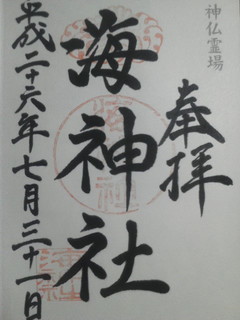 神仏霊場
奉拝
海神社
平成二十六年七月三十一日